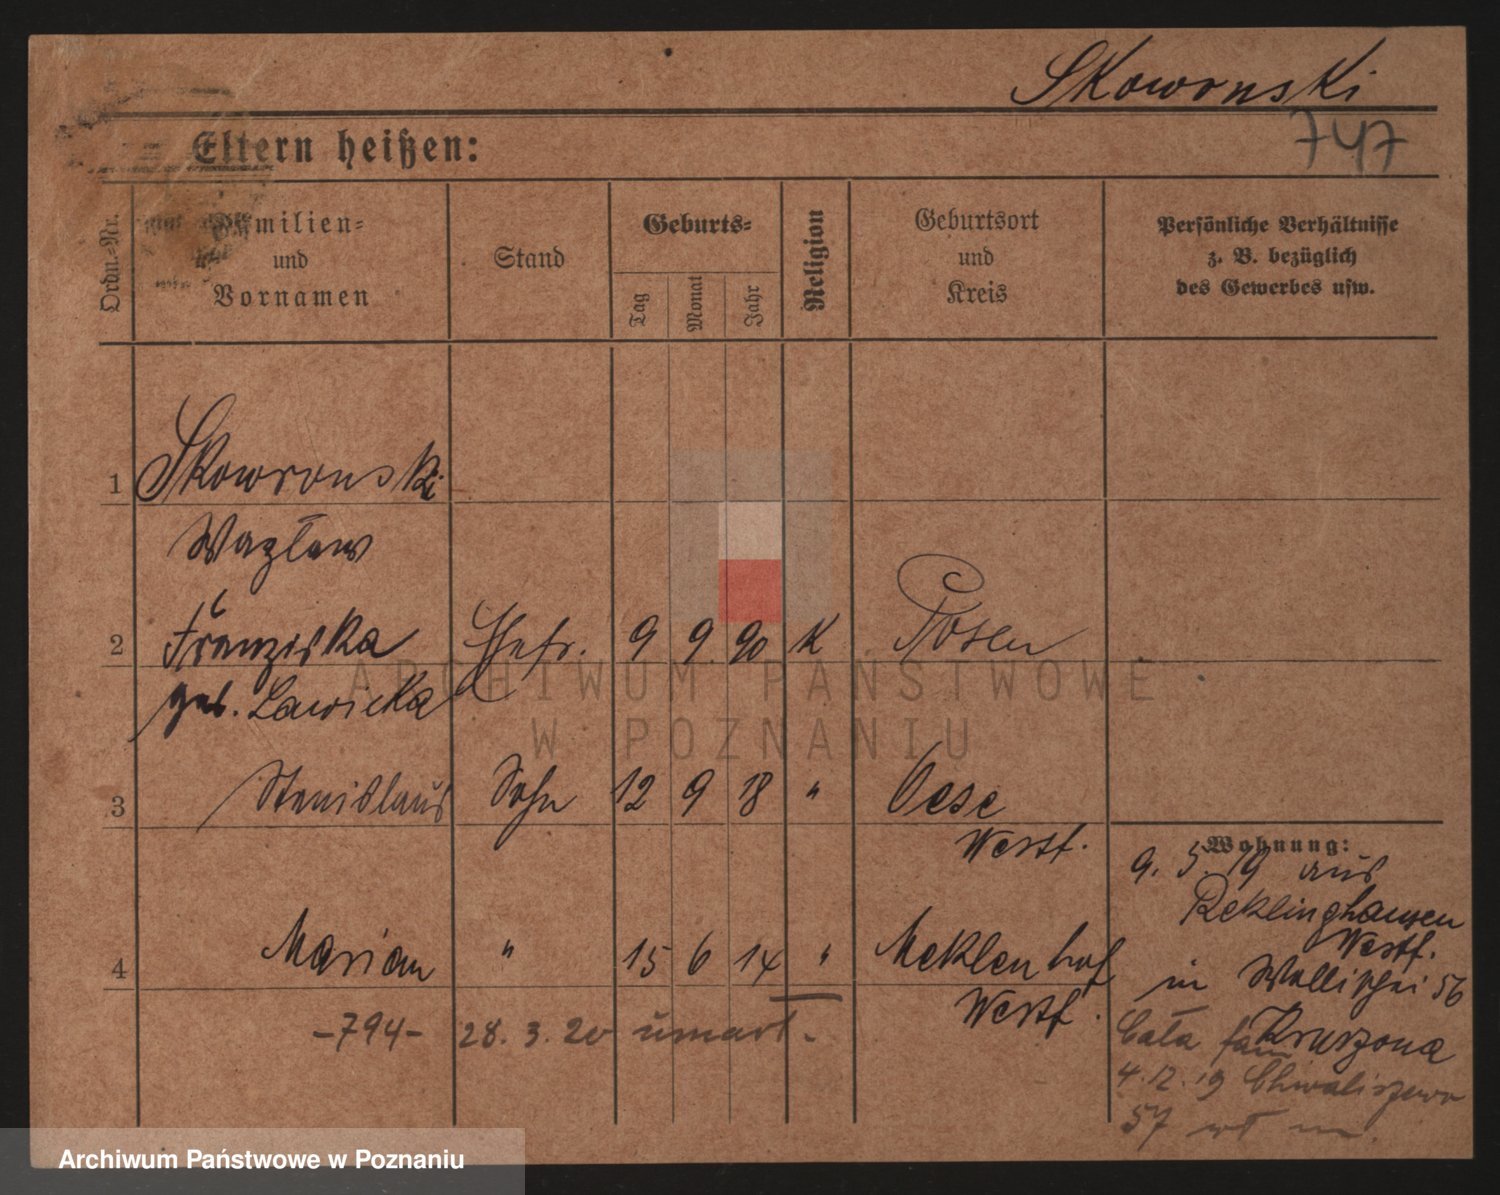 Skowronski
747
Eltern heißen:
Ordn.-Nr.
Familien=
und
Vornamen
Stand
Geburts=
Tag
Monat
Jahr
Religion
Geburtsort
und
Kreis
Persönliche Verhältnisse
z. B. bezüglich
des Gewerbes usw.
1 Skowronski
Wazław
2 Franziska Ehefr. 9 9. 90 K Posen
geb. Lawicka
3 Stanislaus Sohn 12 9 18 " Oese
Westf.
4 Marian " 15 6 14 " Meklenhof
Westf.
-794- 28. 3. 20 umart.
Wohnung:
9. 5. 19 aus
Reklinghausen
Westf.
in Wallischei 56
Kruszona
Cała fam
4.12.19 Chwaliszewo
57
ARCHIWUM PAŃSTWOWE
W POZNANIU
Archiwum Państwowe w Poznaniu